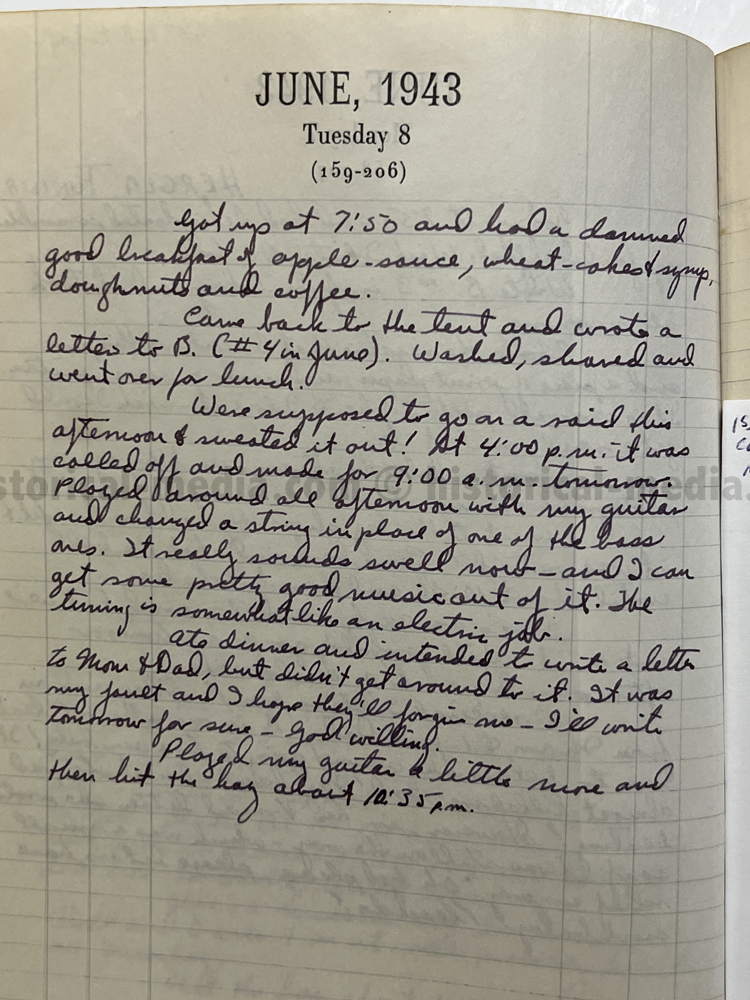 JUNE, 1943
Tuesday 8
(159-206)
Got up at 7:50 and had a damned
good breakfast of apple-sauce, wheat-cakes & syrup,
doughnuts and coffee.
Came back to the tent and wrote a
letter to B. (#4 in June). Washed, shaved and
went over for lunch.
Were supposed to go on a raid this
afternoon & sweated it out! At 4:00 p.m. it was
called off and made for 9:00 a.m. tomorrow.
Played around all afternoon with my guitar
and changed a string in place of one of the bass
ones. It really sounds swell now - and I can
get some pretty good music out of it. The
tuning is somewhat like an electric job.
Ate dinner and intended to write a letter
to Mom & Dad, but didn't get around to it. It was
my fault and I hope they'll forgive me - I'll write
tomorrow for sure - God willing.
Played my guitar a little more and
then hit the hay about 10:35 p.m.